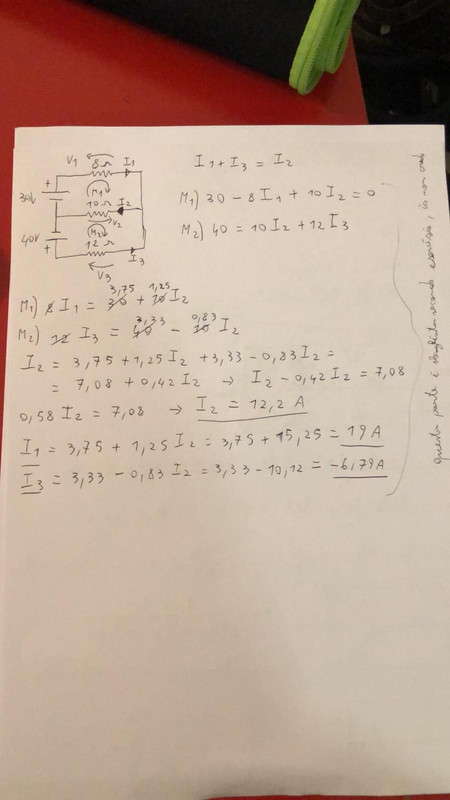 V1 8Ω I1
+
30V
M1
10Ω I2
V2
M2
40V
+
12Ω
I3
V3
I1 + I3 = I2
M1) 30 - 8 I1 + 10 I2 = 0
M2) 40 = 10 I2 + 12 I3
3,75 1,25
M1) 8 I1 = 30 + 10 I2
3,33 0,83
M2) 12 I3 = 40 - 10 I2
I2 = 3,75 + 1,25 I2 + 3,33 - 0,83 I2 =
= 7,08 + 0,42 I2 → I2 - 0,42 I2 = 7,08
0,58 I2 = 7,08 → I2 = 12,2 A
I1 = 3,75 + 1,25 I2 = 3,75 + 15,25 = 19 A
I3 = 3,33 - 0,83 I2 = 3,33 - 10,12 = -6,79 A
questa parte è sbagliata secondo esercizio, io non credo